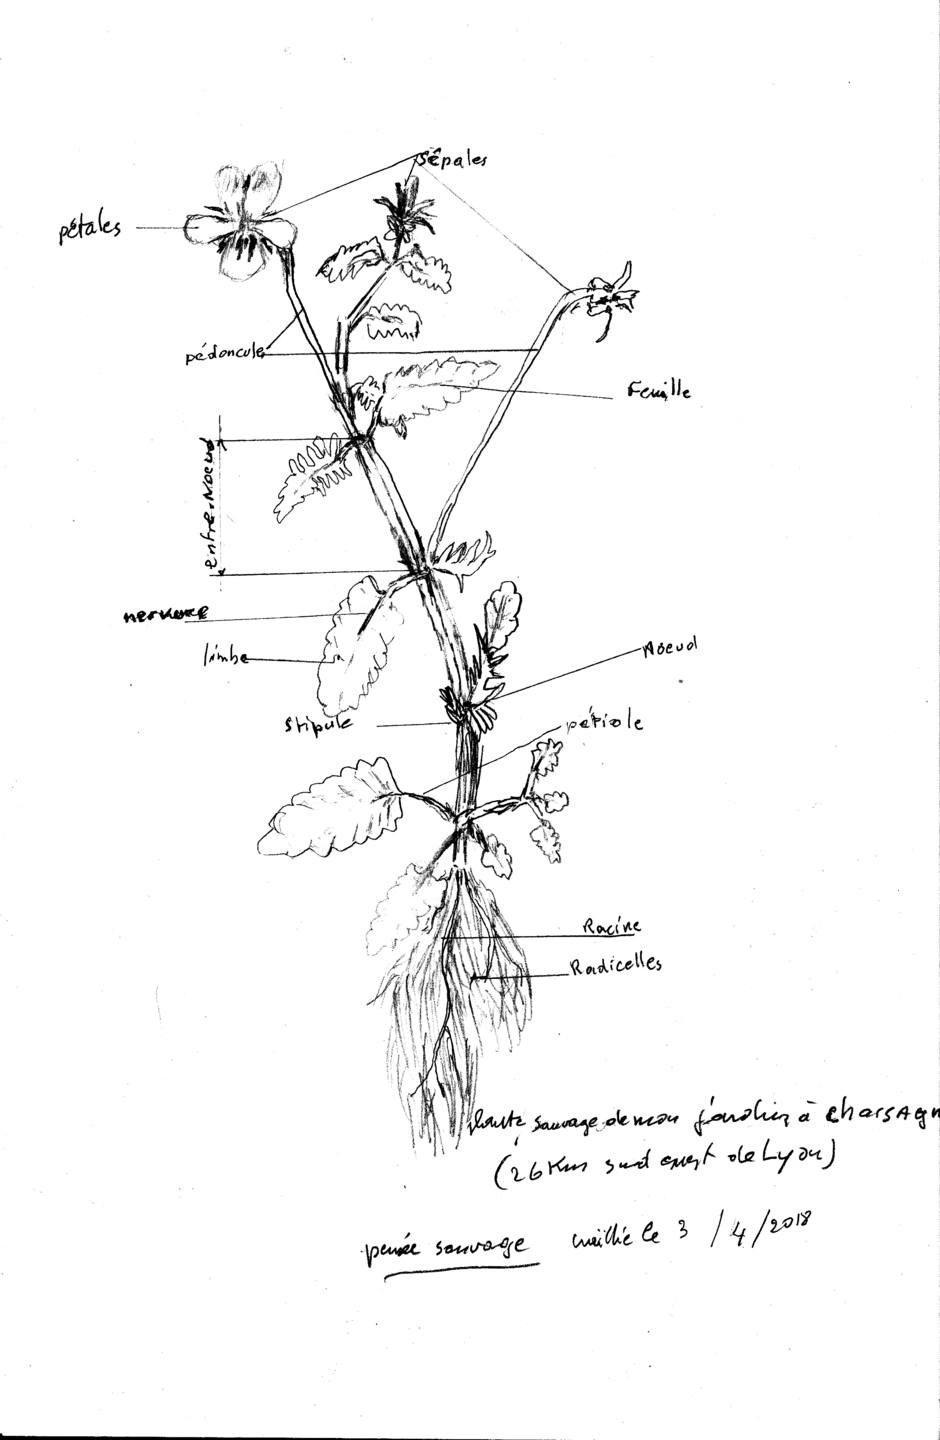 sépales
pétales
pédoncule
Feuille
entre.Noeud
nervure
limbe
Noeud
Stipule
pétiole
Racine
Radicelles
plante sauvage de mon jardin à chassagn
(26 Kms sud ouest de Lyon)
pensée sauvage cueillie le 3 /4/2018